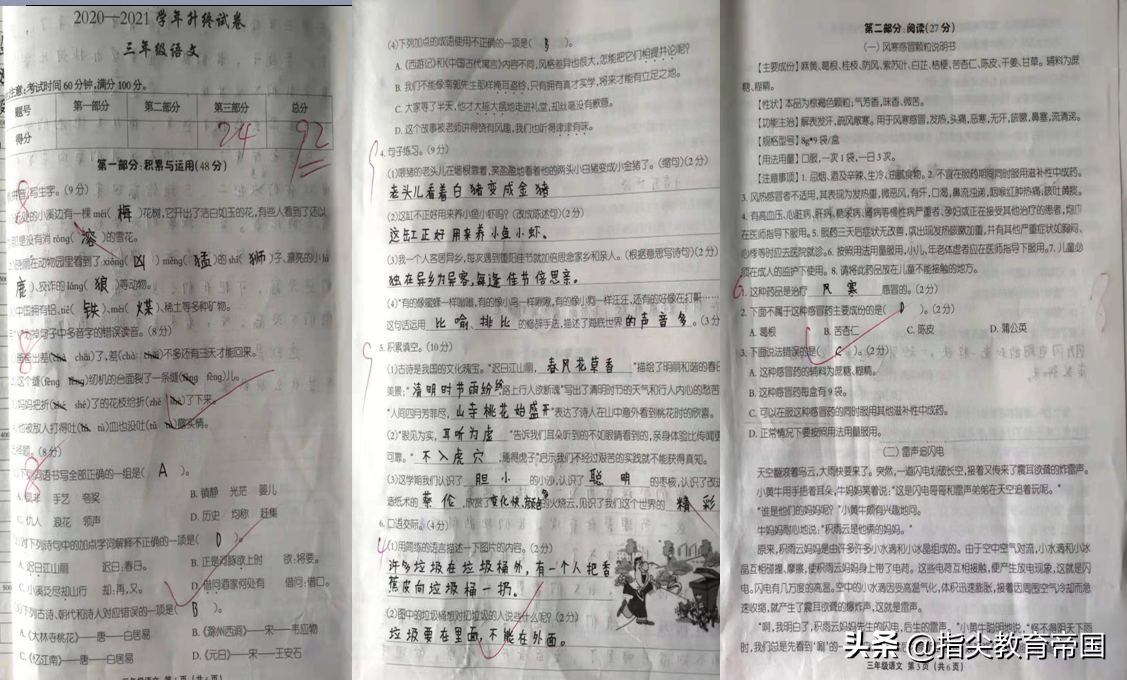 2020—2021学年升终试卷
三年级语文
注意:考试时间60分钟,满分100分。
题号 第一部分 第二部分 第三部分 总分
得分 24 92
第一部分:积累与运用(48分)
写生字。(9分)
的小溪边有一棵méi(梅)花树,它开出了洁白如玉的花,有些人看到了还以
是没有消róng(溶)的雪花。
在动物园里看到了xiōng(凶)měng(猛)的shī(狮)子、漂亮的小lù
(鹿)、狡诈的láng(狼)等动物。
中国拥有铝、tiě(铁)、méi(煤)、稀土等多种矿物。
句子中多音字的错误读音。(8分)
出差(chāi)了,差(chà)不多还有三天才能回来。
这个缝(féng)纫机的台面裂了一条缝(fèng)儿。
妈妈把折(shé)了的花枝给折(zhé)了下来。
他被敌人打得吐(tù)血也没吐(tǔ)露实情。
(8分)
词语书写全部正确的一组是(A)。
手艺 夸奖
B. 镇静 光芒 婴儿
C. 仇人 浪花 领声
D. 历史 均称 赶集
对下列诗句中的加点字词解释不正确的一项是(D)
A. 迟日江山丽 迟日:春日。
B. 正是河豚欲上时 欲:将要。
C. 小溪泛尽却山行 却:再,又。
D. 借问酒家何处有 借问:借口。
下列古诗、朝代和诗人对应错误的一项是(B)。
A.《大林寺桃花》——唐——白居易
B.《滁州西涧》——宋——韦应物
C.《忆江南》——唐——白居易
D.《元日》——宋——王安石
(4)下列加点的成语使用不正确的一项是(B)。
A.《西游记》和《中国古代寓言》内容不同,风格差异也很大,怎能把它们相提并论呢?
B. 我们不能像南郭先生那样掩耳盗铃,只有拥有真才实学,将来才能有立足之地。
C. 大家等了半天,他才大摇大摆地走进礼堂,却丝毫没有歉意。
D. 这个故事被老师讲得饶有风趣,我们也听得津津有味。
4. 句子练习。(9分)
(1)喂猪的老头儿在墙根靠着,笑盈盈地看着他的两头小白猪变成小金猪了。(缩句)(2分)
老头儿看着白猪变成金猪
(2)这缸不正好用来养小鱼小虾吗?(改成陈述句)(2分)
这缸正好用来养小鱼小虾。
(3)我一个人客居异乡,每次遇到重阳佳节就加倍思念家乡和亲人。(根据意思写诗句)(2分)
独在异乡为异客,每逢佳节倍思亲。
(4)“有的像蜜蜂一样嗡嗡,有的像小鸟一样啾啾,有的像小狗一样汪汪,还有的好像在打鼾……
这句话运用比喻、排比的修辞手法,描述了海底世界的声音多。(3分
5. 积累填空。(10分)
(1)古诗是我国的文化瑰宝。“迟日江山丽,春风花草香”描绘了明丽和谐的春日
美景;“清明时节雨纷纷,路上行人欲断魂”写出了清明时节的天气和行人内心的愁苦
“人间四月芳菲尽,山寺桃花始盛开”表达了诗人在山中意外看到桃花时的欣喜。
(2)“眼见为实,耳听为虚”告诉我们耳朵听到的不如眼睛看到的,亲身体验比传闻更
可靠。“不入虎穴,焉得虎子”启示我们不经过艰苦的实践就不能获得真知。
(3)这学期我们认识了胆小的小沙,认识了聪明的枣核,认识了改进
造纸术的蔡伦,欣赏了变化快、颜色多的火烧云,见识了我们这个世界的精彩
6. 口语交际。(4分)
(1)用简练的语言描述一下图片的内容。(2分)
许多垃圾在垃圾桶外,有一个人把香
蕉皮向垃圾桶一扔。
(2)图中的垃圾桶想对扔垃圾的人说些什么呢?(2分)
垃圾要在里面,不能在外面。
第二部分:阅读(27分)
(一)风寒感冒颗粒说明书
【主要成份】麻黄、葛根、桂枝、防风、紫苏叶、白芷、桔梗、苦杏仁、陈皮、干姜、甘草。辅料为蔗
糖、糊精。
【性状】本品为棕褐色颗粒;气芳香,味香、微苦。
【功能主治】解表发汗,疏风散寒。用于风寒感冒,发热,头痛,恶寒,无汗,咳嗽,鼻塞,流清涕。
【规格型号】8g*9袋/盒
【用法用量】口服,一次1袋,一日3次。
【注意事项】1. 忌烟、酒及辛辣、生冷、油腻食物。2. 不宜在服药期间同时服用滋补性中成药。
3. 风热感冒者不适用,其表现为发热重,微恶风,有汗,口渴,鼻流浊涕,咽喉红肿热痛,咳吐黄痰。
4. 有高血压、心脏病、肝病、糖尿病、肾病等慢性病严重者、孕妇或正在接受其他治疗的患者,均应
在医师指导下服用。5. 服药三天后症状无改善,或出现发热咳嗽加重,并有其他严重症状如胸闷、
心悸等时应去医院就诊。6. 按照用法用量服用,小儿、年老体虚者应在医师指导下服用。7. 儿童必
须在成人的监护下使用。8. 请将此药品放在儿童不能接触的地方。
1. 这种药品是治疗风寒感冒的。(2分)
2. 下面不属于这种感冒药主要成份的是(D)。(2分)
A. 葛根 B. 苦杏仁 C. 陈皮 D. 蒲公英
3. 下面说法错误的是(C)。(2分)
A. 这种感冒药的辅料为蔗糖、糊精。
B. 这种感冒药每盒有9袋。
C. 可以在服这种感冒药的同时服用其他滋补性中成药。
D. 正常情况下要按照用法用量服用。
(二)雷声追闪电
天空翻滚着乌云,大雨快要来了。突然,一道闪电划破长空,接着又传来了震耳欲聋的炸雷声。
小黄牛用手捂着耳朵,牛妈妈笑着说:“这是闪电哥哥和雷声弟弟在天空追着玩呢。”
“谁是他们的妈妈呢?”小黄牛颇有兴趣地问。
牛妈妈耐心地说:“积雨云是他俩的妈妈。”
原来,积雨云妈妈是由许多许多小水滴和小冰晶组成的。由于空中空气对流,小水滴和小冰
晶互相碰撞、摩擦,使积雨云妈妈身上带了电荷。这些电荷互相接触,便产生放电现象,这就是闪
电。闪电有几万度的高温。空中的小水滴因受高温气化,体积迅速膨胀,接着因周围空气冷却而急
速收缩,就产生了震耳欲聋的爆炸声,这就是雷声。
“啊,我明白了,积雨云妈妈先生的闪电,后生的雷声。”小黄牛聪明地说,“怪不得阴天下雨
时,我们总是先看到‘
三年级语文 第3页 (共6页)
头条 @指尖教育帝国